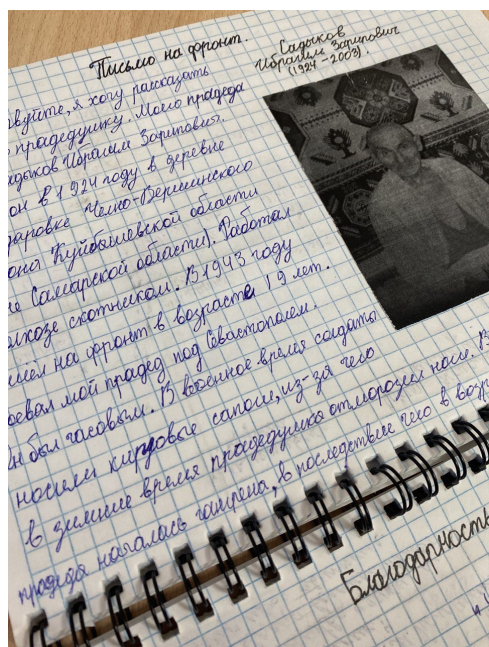 Письмо на фронт.
Садыков
Ибрагим Зарипович
(1924-2003).
вуйте, я хочу рассказать
прадедушку. Моего прадеда
адыков Ибрагим Зарипович.
он в 1924 году в деревне
даровке Челно-Вершинского
Куйбышевской области
Самарской области). Работал
лхозе скотником. В 1943 году
шёл на фронт в возрасте 19 лет.
оевал мой прадед под Севастополем.
н был часовым. В военное время солдаты
носили кирзовые сапоги, из-за чего
в зимнее время прадедушка отморозил ноги. В
прадеда началась гангрена, в последствее чего в возр
Благодарность